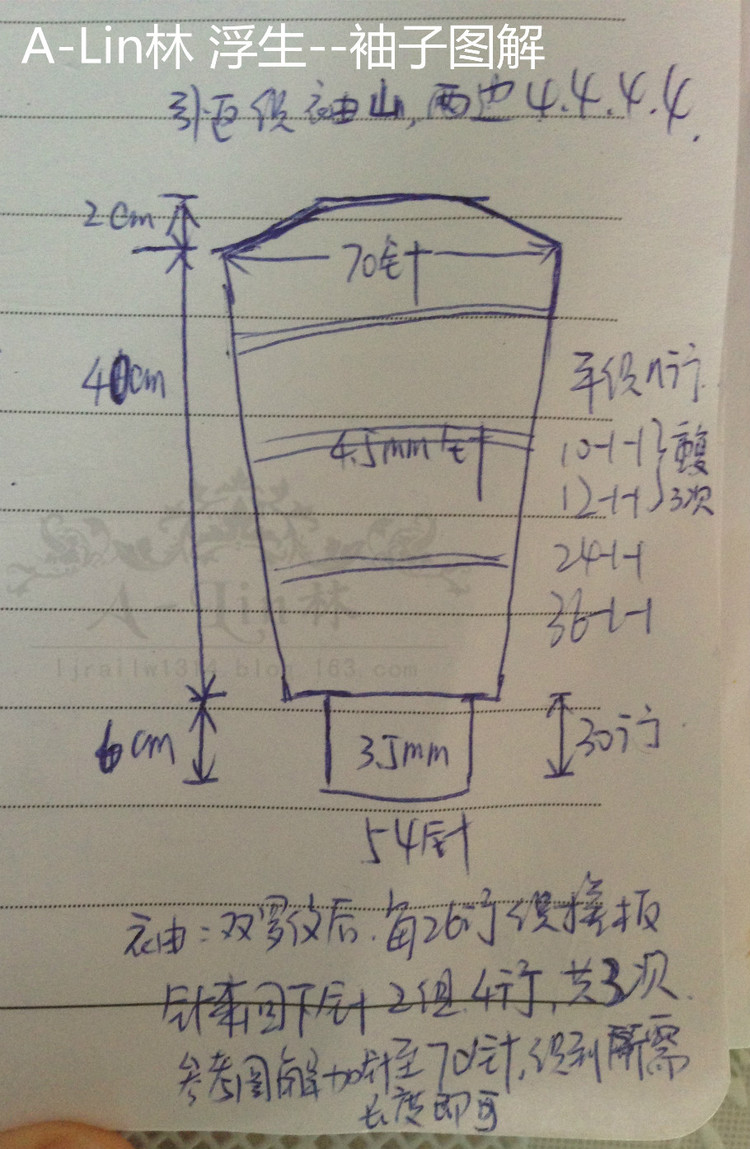 A-Lin林 浮生--袖子图解
引返织袖山,两边4.4.4.4.
2cm
70针
40cm
平织n行
4.5mm针
10-1-1 重复
12-1-1 3次
24-1-1
36-1-1
A-Lin林
ljrallw1314.blog.163.com
6cm
3.5mm
30行
54针
袖:双罗纹后.每26行织搓板
针来回下针2组.4行,共3次.
参考图解加针至70针,织到所需
长度即可